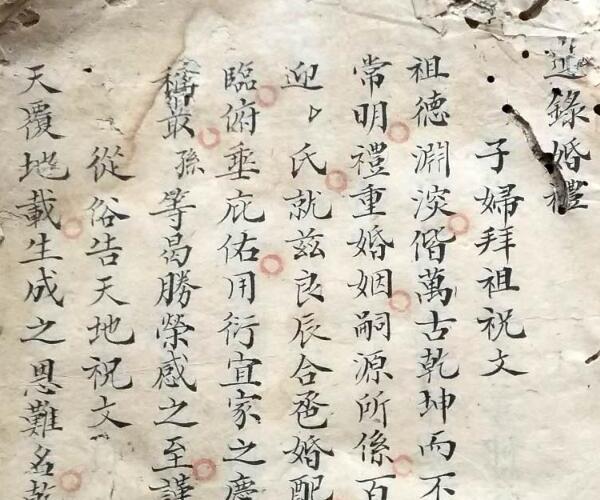 錄婚禮
子婦拜祖祝文
祖德淵深偕萬古乾坤而不
常明禮重婚姻嗣源所係百
迎氏就茲良辰合卺婚配
臨俯垂庇佑用衍宜家之慶
孫等曷勝榮感之至謹
從俗告天地祝文
天覆地載生成之恩難名乾